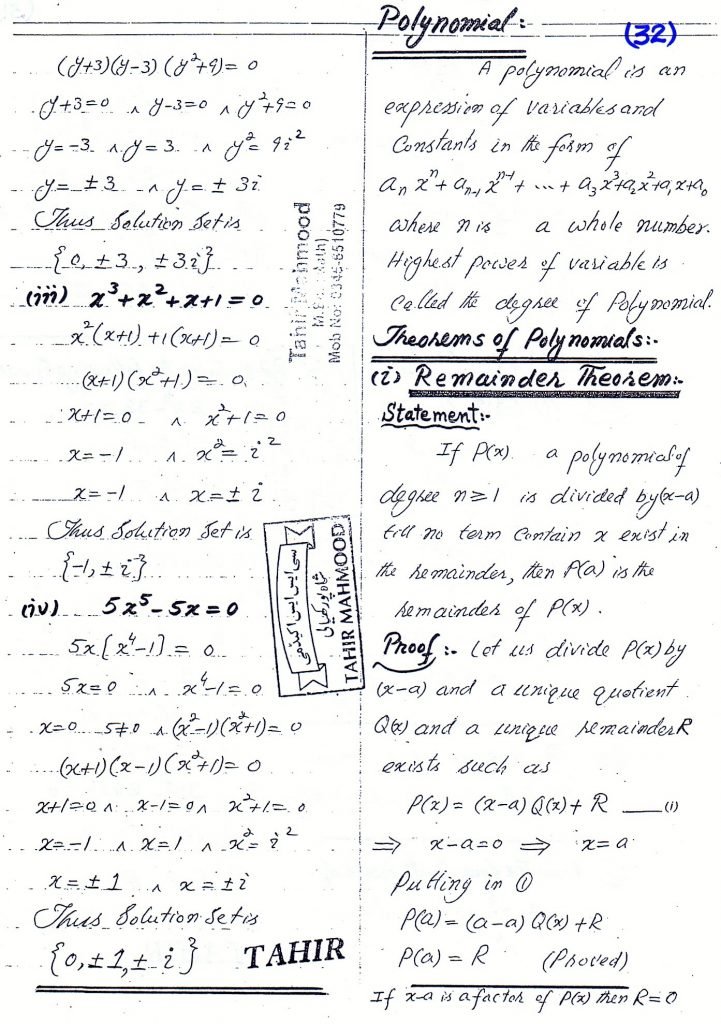 (32)
(y+3)(y-3)(y²+9)= 0
y+3=0 ∧ y-3=0 ∧ y²+9=0
y=-3 ∧ y=3 ∧ y²= 9i²
y= ±3 ∧ y= ± 3i
Thus Solution Set is
{0, ±3, ±3i}
(iii) x³+x²+x+1=0
x²(x+1)+1(x+1)= 0
(x+1)(x²+1)= 0
x+1=0 ∧ x²+1=0
x=-1 ∧ x²= i²
x=-1 ∧ x=± i
Thus Solution Set is
{-1, ± i}
(iv) 5x⁵-5x=0
5x[x⁴-1] = 0
5x=0 ∧ x⁴-1=0
x=0 5≠0 ∧ (x²-1)(x²+1)= 0
(x+1)(x-1)(x²+1)= 0
x+1=0 ∧ x-1=0 ∧ x²+1=0
x=-1 ∧ x=1 ∧ x²= i²
x=±1 ∧ x=±i
Thus Solution Set is
{0,±1,± i}
TAHIR
Tahir Mahmood
Mob No: 0345-6510779
سی ایس ایس اکیڈمی
TAHIR MAHMOOD
Polynomial:-
A polynomial is an
expression of variables and
Constants in the form of
aₙxⁿ+aₙ₋₁xⁿ⁻¹+ ... +a₃x³+a₂x²+a₁x+a₀
where n is a whole number.
Highest power of variable is
called the degree of Polynomial.
Theorems of Polynomials:-
(i) Remainder Theorem:-
Statement:-
If P(x) a polynomial of
degree n≥1 is divided by(x-a)
till no term Contain x exist in
the remainder, then P(a) is the
remainder of P(x).
Proof:- Let us divide P(x) by
(x-a) and a unique quotient
Q(x) and a unique remainder R
exists such as
P(x)= (x-a)Q(x)+ R ___(1)
⇒ x-a=0 ⇒ x=a
Putting in ①
P(a)= (a-a)Q(x)+R
P(a) = R (Proved)
If x-a is a factor of P(x) then R=0